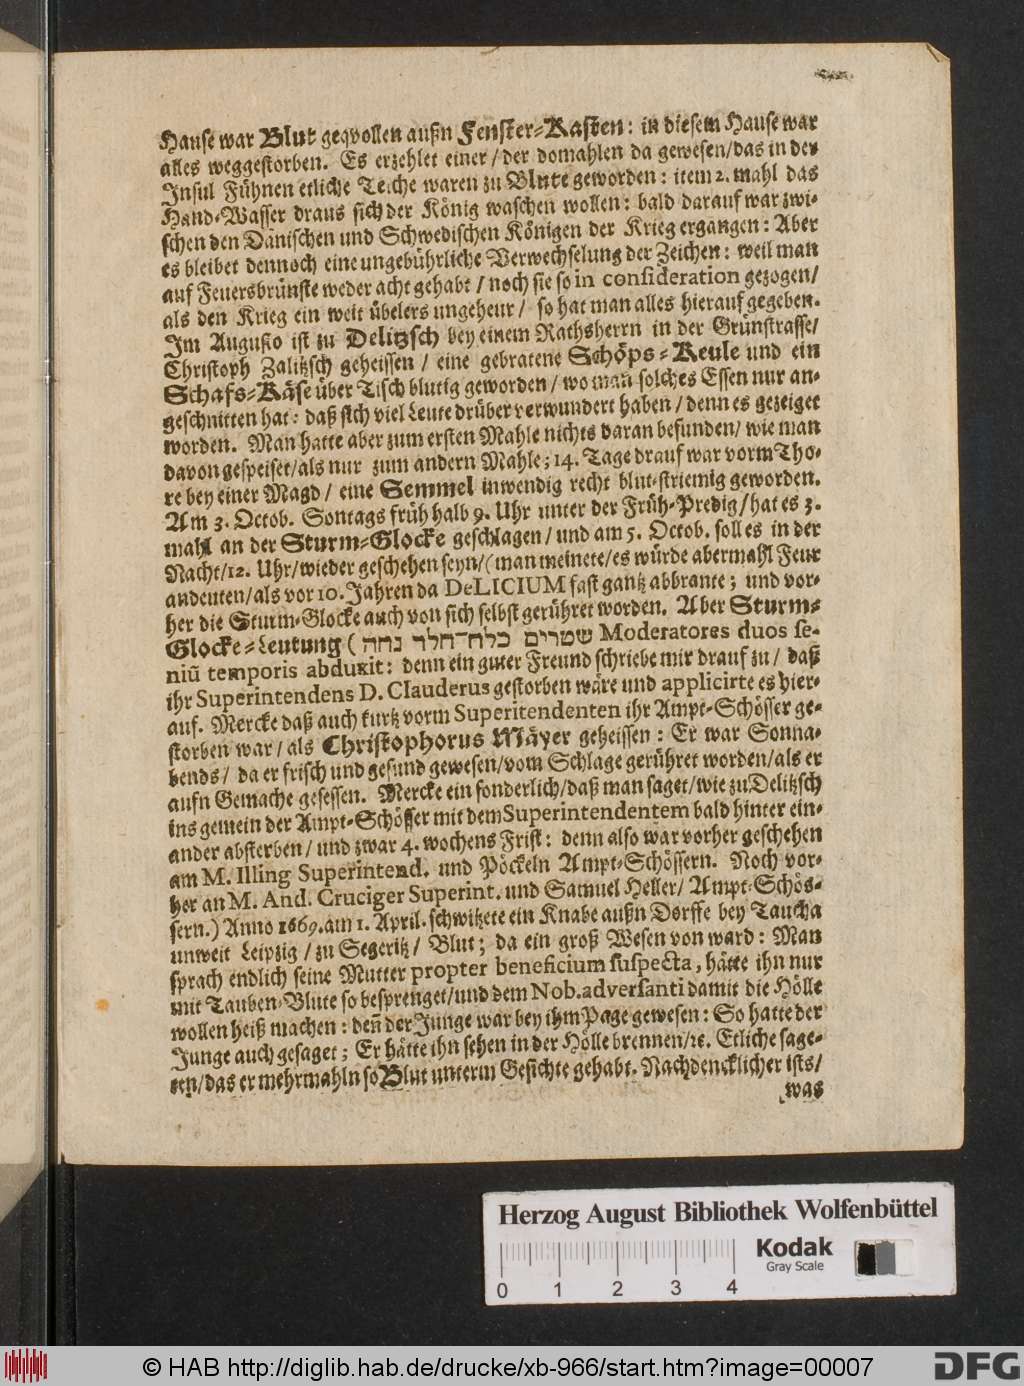 Hause war Blut geqvollen außn Fenster-Kasten: in diesem Hause war
alles weggestorben. Es erzehlet einer / der domahlen da gewesen/das in der
Insul Fühnen etliche Teiche waren zu Blute geworden: item 2. mahl das
Hand-Wasser draus sich der König waschen wollen: bald darauf war zwi-
schen den Dänischen und Schwedischen Königen der Krieg ergangen: Aber
es bleibet dennoch eine ungebührliche Verwechselung der Zeichen: weil man
auf Feuersbrünste weder acht gehabt / noch sie so in consideration gezogen/
als den Krieg ein weit übelers ungeheur / so hat man alles hierauf gegeben.
Im Augusto ist zu Delitzsch bey einem Rathsherrn in der Grünstrasse/
Christoph Zalitzsch geheissen / eine gebratene Schöps-Keule und ein
Schafs-Käse über Tisch blutig geworden / wo man solches Essen nur an-
geschnitten hat: daß sich viel Leute drüber verwundert haben / denn es gezeiget
worden. Man hatte aber zum ersten Mahle nichts daran befunden/ wie man
davon gespeiset/als nur zum andern Mahle; 14. Tage drauf war vorm Tho-
re bey einer Magd / eine Semmel inwendig recht blut-striemig geworden.
Am 3. Octob. Sontags früh halb 9. Uhr unter der Früh-Predig/hat es 3.
mahl an der Sturm-Glocke geschlagen / und am 5. Octob. soll es in der
Nacht/12. Uhr/wieder geschehen seyn/(man meinete/es würde abermahl Feur
andeuten/als vor 10. Jahren da DeLICIUM fast gantz abbrante; und vor-
her die Sturm-Glocke auch von sich selbst gerühret worden. Aber Sturm-
Glocke-Leutung ( שטרים כלח־חלד נחה Moderatores duos se-
niū temporis abduxit: denn ein guter Freund schriebe mir drauf zu / daß
ihr Superintendens D. Clauderus gestorben wäre und applicirte es hier-
auf. Mercke daß auch kurtz vorm Superitendenten ihr Ampt-Schösser ge-
storben war / als Christophorus Mäyer geheissen: Er war Sonna-
bends / da er frisch und gesund gewesen/vom Schlage gerühret worden/als er
aufn Gemache gesessen. Mercke ein sonderlich/daß man saget/wie zu Delitzsch
ins gemein der Ampt-Schösser mit dem Superintendentem bald hinter ein-
ander absterben / und zwar 4. wochens Frist: denn also war vorher geschehen
am M. Illing Superintend. und Pöckeln Ampt-Schössern. Noch vor-
her an M. And. Cruciger Superint. und Samuel Heller/ Ampt-Schös-
sern.) Anno 1669. am 1. April. schwitzete ein Knabe außn Dorffe bey Taucha
unweit Leipzig / zu Segeritz / Blut; da ein groß Wesen von ward: Man
sprach endlich seine Mutter propter beneficium suspecta, hätte ihn nur
mit Tauben-Blute so besprenget/und dem Nob. adversanti damit die Hölle
wollen heiß machen: deñ der Junge war bey ihm Page gewesen: So hatte der
Junge auch gesaget; Er hätte ihn sehen in der Hölle brennen/ꝛc. Etliche sage-
ten/das er mehrmahln so Blut unterm Gesichte gehabt. Nachdencklicher ists/
was
Herzog August Bibliothek Wolfenbüttel
Kodak
Gray Scale
0 1 2 3 4
© HAB http://diglib.hab.de/drucke/xb-966/start.htm?image=00007
DFG